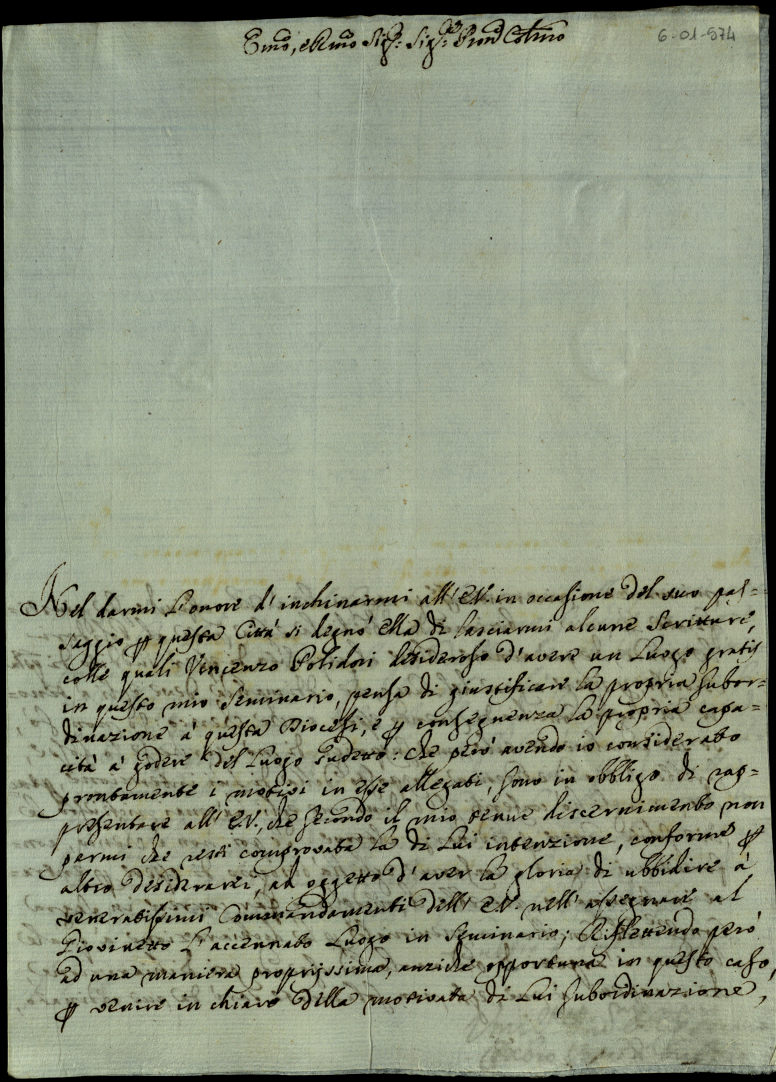 Emo, e Rmo Sigr: Sigr: Pron Colmo
6-01-974
Nel darmi l'onore d'inchinarmi all'E.V. in occasione del suo pas=
saggio ꝑ questa Città si degnò ella di lasciarmi alcune Scritture,
colle quali Vincenzo Polidori desideroso d'avere un Luogo gratis
in questo mio Seminario, pensa di giustificare la propria subor=
dinazione à questa Diocesi, e ꝑ conseguenza la propria capa=
cità à godere del Luogo sudetto: che però avendo io considerato
prontamente i motivi in esse allegati, sono in obbligo di rap=
presentare all'E.V., che secondo il mio tenue discernimento non
parmi che resti comprovata la di Lui intenzione, conforme ꝑ
altro desiderarei, ad oggetto d'aver la gloria di ubbidire à
veneratissimi Commandamenti dell'E.V. nell'assegnare al
Giovinetto l'accennato Luogo in Seminario; Riflettendo però
ad una maniera proprijssima, anziche opportuna in questo caso,
ꝑ venire in chiaro della motivata di Lui subordinazione,